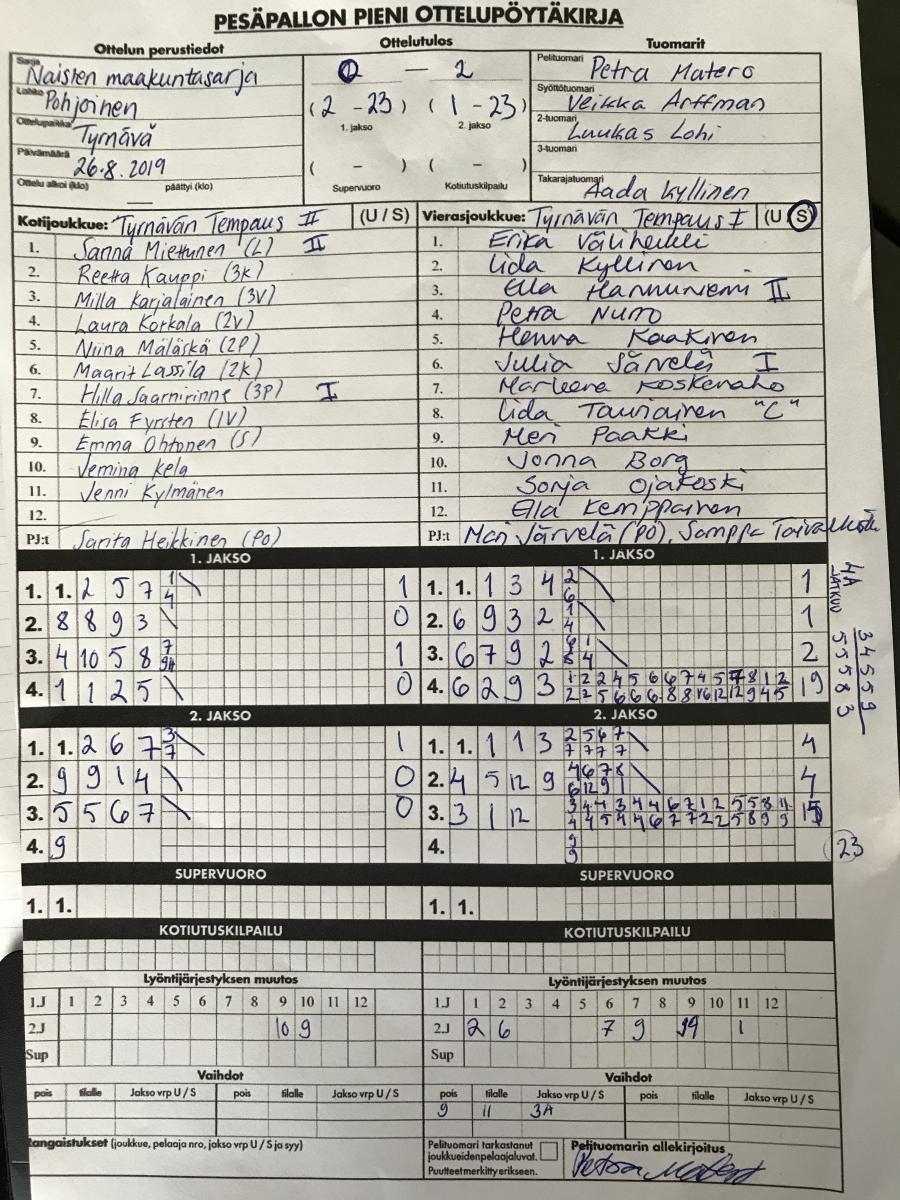 PESÄPALLON PIENI OTTELUPÖYTÄKIRJA
Ottelun perustiedot
Ottelutulos
Tuomarit
Sarja Naisten maakuntasarja
0 — 2
Pelituomari Petra Matero
Lohko Pohjoinen
(2 - 23) (1 - 23)
Syöttötuomari Veikka Arffman
Ottelupaikka Tyrnävä
1. jakso 2. jakso
2-tuomari Luukas Lohi
Päivämäärä 26.8.2019
( - ) ( - )
3-tuomari
Ottelu alkoi (klo) päättyi (klo)
Supervuoro Kotiutuskilpailu
Takarajatuomari Aada Kyllinen
Kotijoukkue: Tyrnävän Tempaus II (U / S)
Vierasjoukkue: Tyrnävän Tempaus I (U / S)
1. Sanna Miettunen (L) II
1. Erika Väliheikki
2. Reetta Kauppi (3K)
2. Iida Kyllinen
3. Milla Karjalainen (3V)
3. Ella Hannuniemi II
4. Laura Korkala (2V)
4. Petra Nurro
5. Niina Mäläskä (2P)
5. Henna Kaakinen
6. Maarit Lassila (2K)
6. Julia Järvelä I
7. Hilla Saarnirinne (3P) I
7. Marleena Koskenaho
8. Elisa Fyrsten (1V)
8. Iida Tauriainen "C"
9. Emma Ohtonen (S)
9. Meri Paakki
10. Jemina Kela
10. Jonna Borg
11. Jenni Kylmänen
11. Sonja Ojakoski
12.
12. Ella Kemppainen
PJ:t Sarita Heikkinen (PO)
PJ:t Mari Järvelä (PO), Samppa
1. JAKSO
1. JAKSO
1. 1. 2 5 7 1 4 1
1. 1. 1 3 4 2 6 1
2. 8 8 9 3 0
2. 6 9 3 2 1 4 1
3. 4 10 5 8 7 1
3. 6 7 9 2 2
4. 1 1 2 5 0
4. 6 2 9 3 19
4A JATKUU
3 4 5 5 9
5 5 5 8 3
2. JAKSO
2. JAKSO
1. 1. 2 6 7 3 7 1
1. 1. 1 1 3 2 5 6 7 4
7 7 7 7
2. 9 9 1 4 0
2. 4 5 12 9 4 6 7 8 4
6 12 9 1
3. 5 5 6 7 0
3. 3 1 12 15
4. 9
4. 9 9
23
SUPERVUORO
SUPERVUORO
1. 1.
1. 1.
KOTIUTUSKILPAILU
KOTIUTUSKILPAILU
Lyöntijärjestyksen muutos
Lyöntijärjestyksen muutos
1.J 1 2 3 4 5 6 7 8 9 10 11 12
1.J 1 2 3 4 5 6 7 8 9 10 11 12
2.J 10 9
2.J 2 6 7 9 1
Sup
Sup
Vaihdot
Vaihdot
pois tilalle Jakso vrp U / S pois tilalle Jakso vrp U / S
pois tilalle Jakso vrp U / S pois tilalle Jakso vrp U / S
9 11 3A
Rangaistukset (joukkue, pelaaja nro, jakso vrp U / S ja syy)
Pelituomari tarkastanut
joukkueiden pelaajaluvat.
Puutteet merkitty erikseen.
Pelituomarin allekirjoitus
Petra Matero